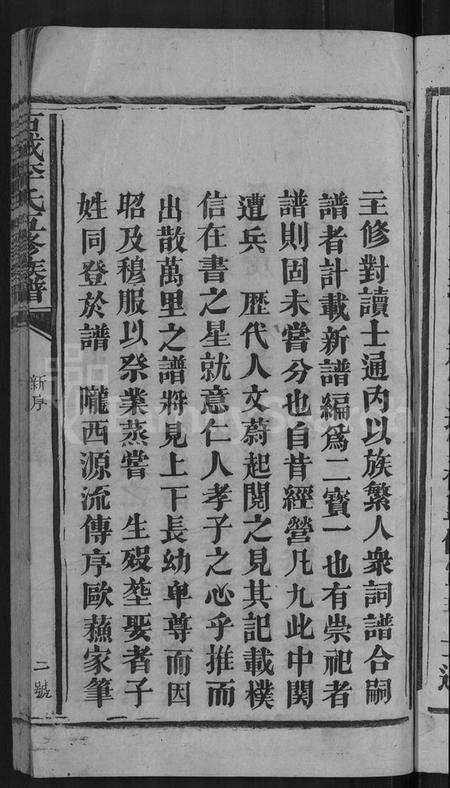 主修對讀士通內以族繁人衆詞譜合嗣
譜者計載新譜編爲二實一也有崇祀者
譜則固未嘗分也自昔經營凡九此中関
遭兵 歴代人文蔚起閱之見其記載樸
信在書之星就意仁人孝子之心乎推而
出散萬里之譜將見上下長幼卑尊而因
昭及穆服以祭業蒸嘗 生殁塟娶者子
姓同登於譜 隴西源流傳序歐蘓家筆
李氏 修族譜
新序
二號